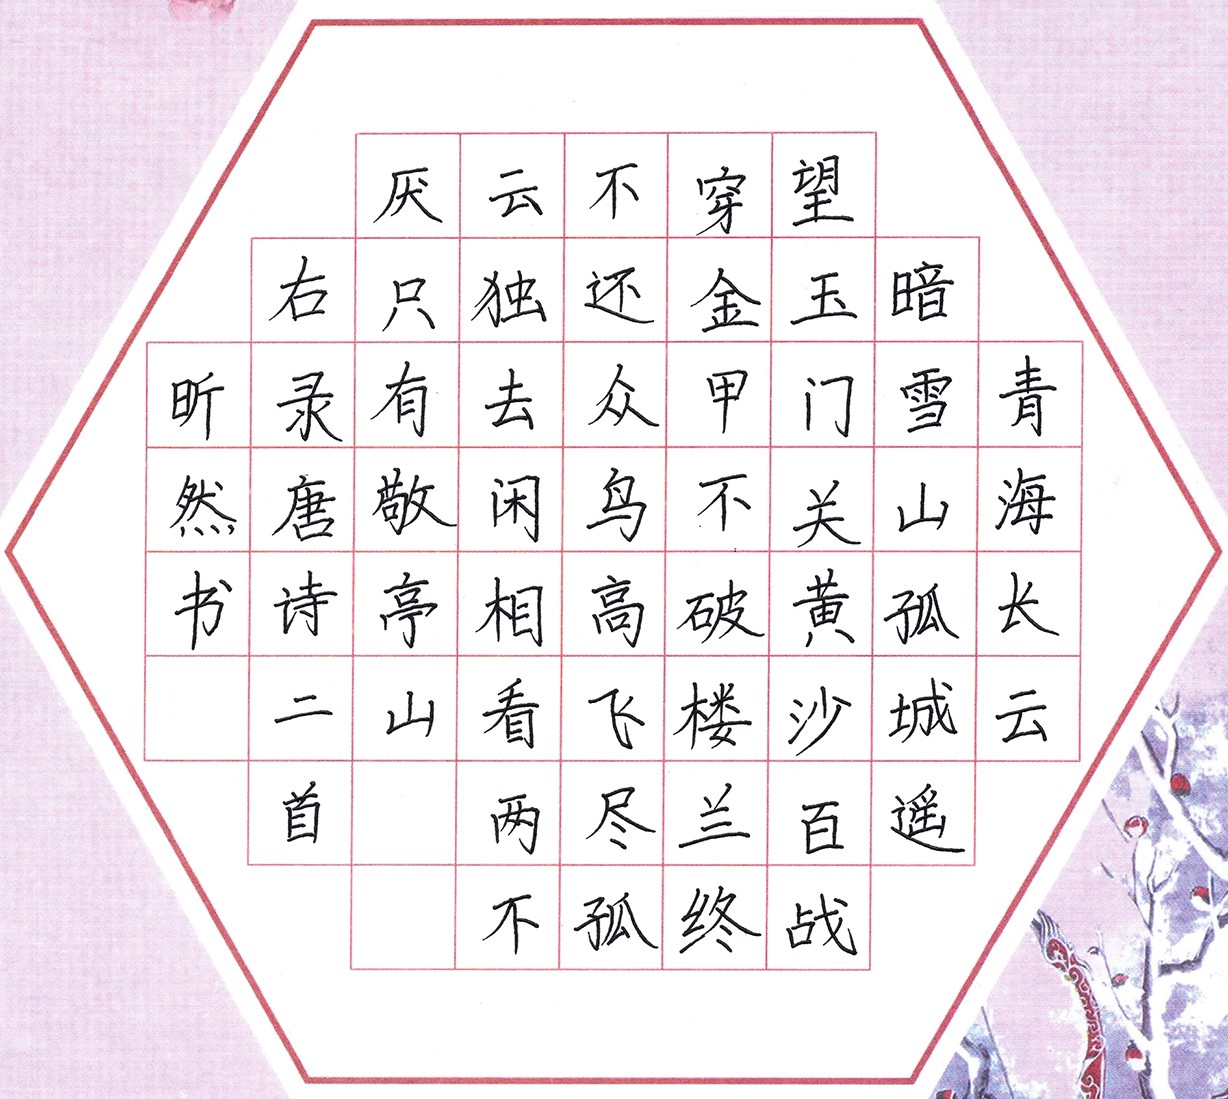 青海长云
暗雪山孤城遥
望玉门关黄沙百战
穿金甲不破楼兰终
不还众鸟高飞尽孤
云独去闲相看两不
厌只有敬亭山
右录唐诗二首
昕然书